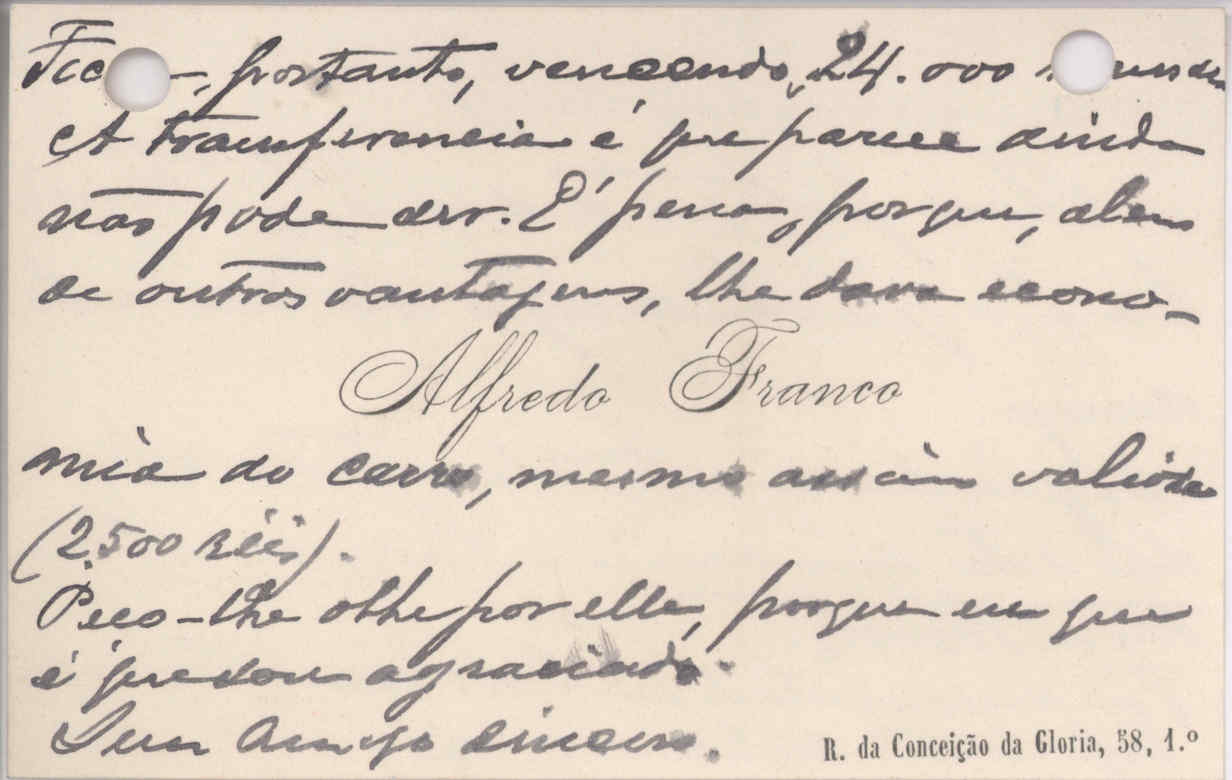 portanto, vencendo, 24.000
A transferencia é que parece ainda
não pode ser. É pena, porque, alem
de outras vantagens, lhe dava econo-
Alfredo Franco
mia do carro, mesmo assim valiosa
(2500 réis).
Peço-lhe olhe por elle, porque eu que
é que sou agraciado.
Seu Amigo sincero.
R. da Conceição da Gloria, 58, 1.º